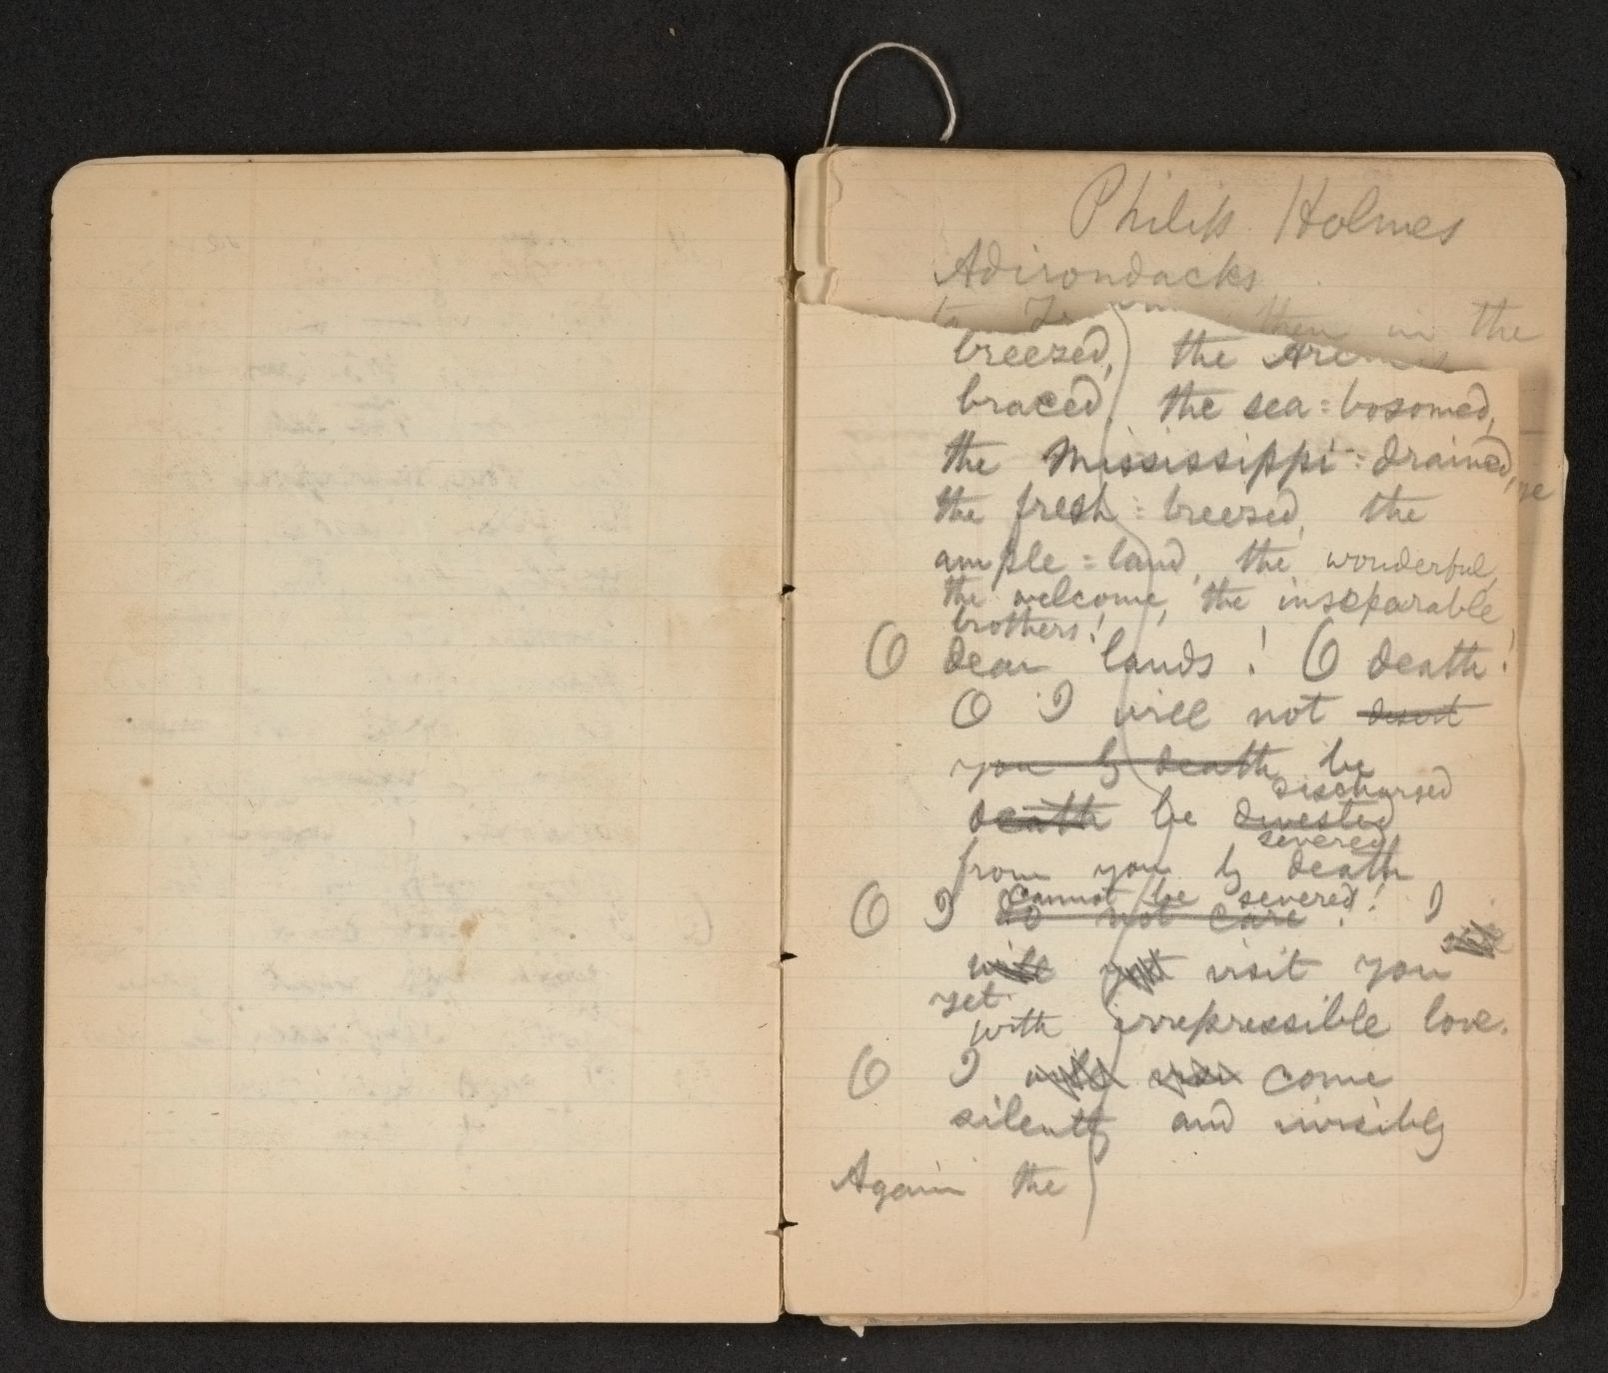 Philip Holmes
Adirondacks
then in the
breezed, the
braced, the sea=bosomed,
the Mississippi=drained,
the fresh=breezed, the
ample=land, the wonderful,
the welcome, the inseparable
brothers!
O dear lands! O death!
O I will not desert
you by death be
discharged
death be divested
severed
from you by death
cannot be severed!
O I do not care! I
will
will yet visit you
yet
with irrepressible love.
O I will come
silently and invisibly
Again the